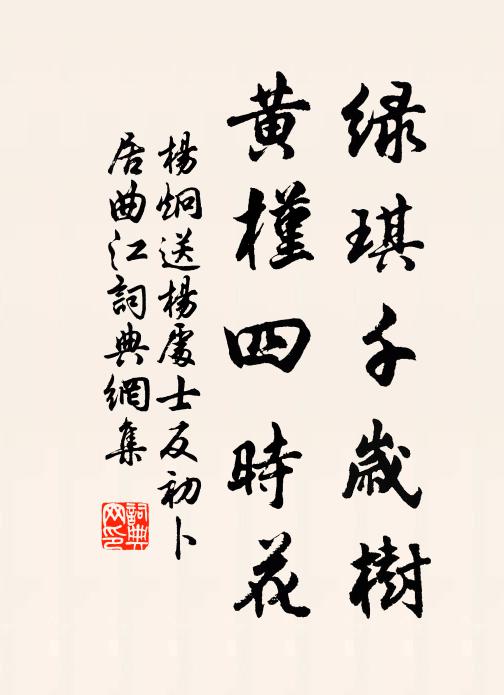 绿琪千歲樹
黄槿四時花
楊炯送楊處士反初卜
居曲江詞典網集
詞典
网印